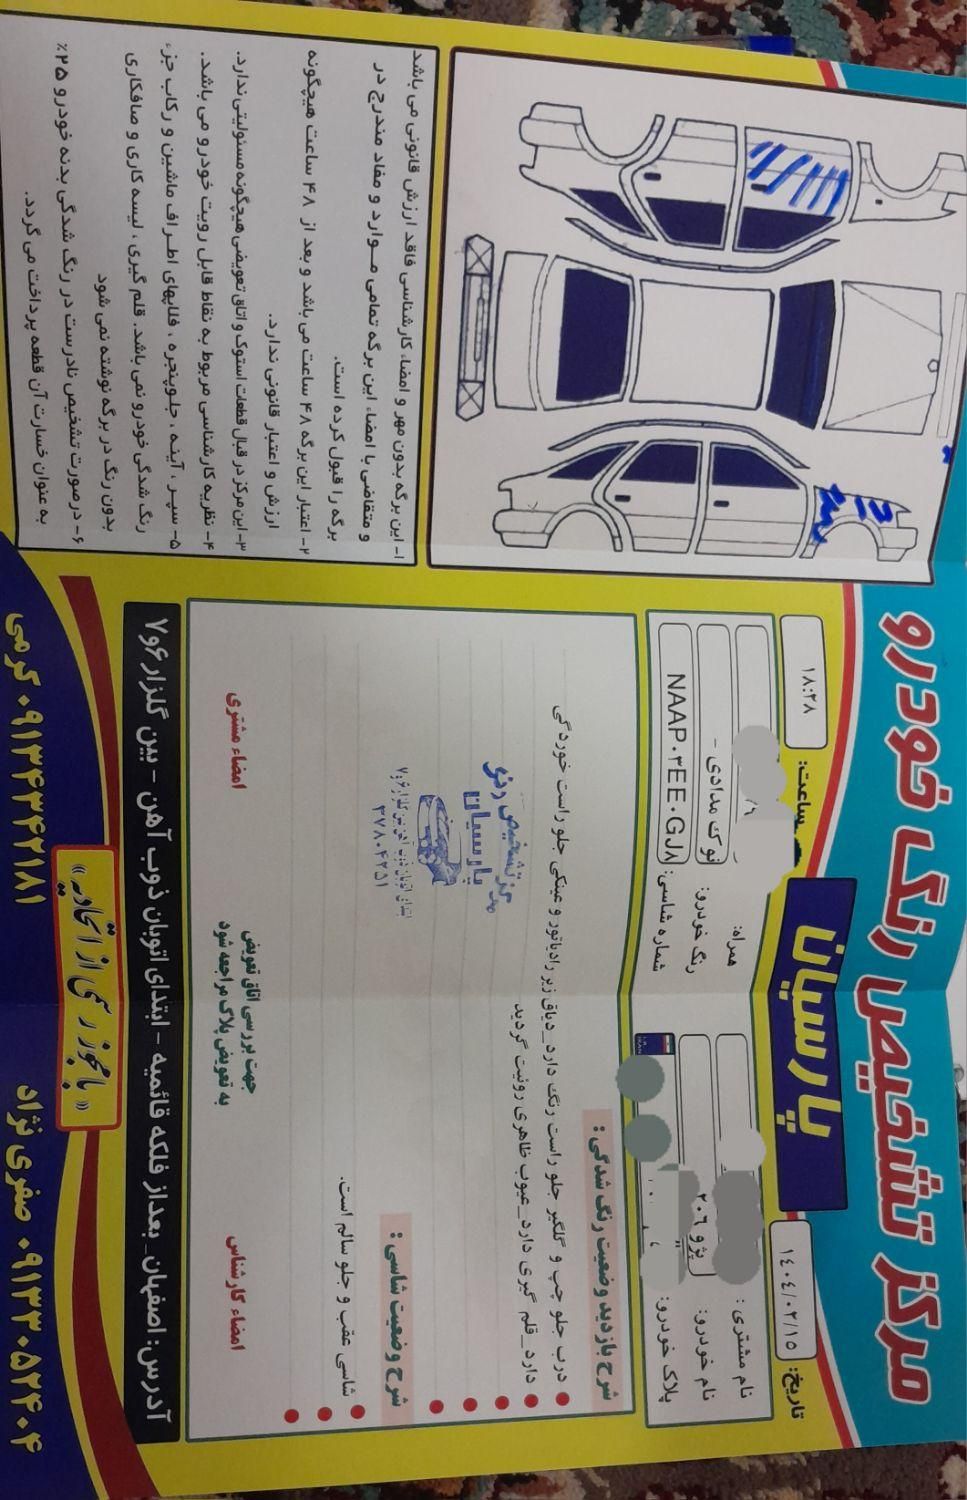 مرکز تشخیص رنگ خودرو
پارسیان
تاریخ: ۱۴۰۴/۰۲/۱۵
ساعت: ۱۸:۲۸
نام مشتری:
همراه:
نام خودرو: پژو ۲۰۶
رنگ خودرو: نوک مدادی -
پلاک خودرو:
شماره شاسی: NAAP۰۳EE۰GJ۸
شرح بازدید وضعیت رنگ شدگی:
درب جلو چپ و گلگیر جلو راست رنگ دارد_دیاق زیر رادیاتور و عینکی جلو راست خوردگی
دارد_قلم گیری دارد_عیوب ظاهری روئیت گردید
شرح وضعیت شاسی:
شاسی عقب و جلو سالم است.
مرکز تشخیص رنگ
پارسیان
ابتدای اتوبان ذوب آهن بین گلزار ۶و۷
۳۷۸۰۴۲۵۱
امضاء کارشناس
جهت بررسی اتاق تعویض
به تعویض پلاک مراجعه شود
امضاء مشتری
۱- این برگه بدون مهر و امضاء کارشناسی فاقد ارزش قانونی می باشد
و متقاضی با امضاء این برگه تمامی موارد و مفاد مندرج در
برگه را قبول کرده است.
۲- اعتبار این برگه ۴۸ ساعت می باشد و بعد از ۴۸ ساعت هیچگونه
ارزش و اعتبار قانونی ندارد.
۳- این مرکز در قبال قطعات استوک و اتاق تعویضی هیچگونه مسئولیتی ندارد.
۴- نظریه کارشناسی مربوط به نقاط قابل رویت خودرو می باشد.
۵- سپر ، آینه ، جلوپنجره ، فلاپهای اطراف ماشین و رکاب جزء
رنگ شدگی خودرو نمی باشد. قلم گیری ، لیسه کاری و صافکاری
بدون رنگ در برگه نوشته نمی شود
۶- درصورت تشخیص نادرست در رنگ شدگی بدنه خودرو ۲۵٪
به عنوان خسارت آن قطعه پرداخت می گردد.
آدرس: اصفهان_ بعداز فلکه قائمیه - ابتدای اتوبان ذوب آهن - بین گلزار ۶و۷
«با مجوز رسمی از اتحادیه»
۰۹۱۳۳۰۵۲۴۰۴ صفری نژاد
۰۹۱۳۴۳۴۲۱۸۱ کرمی